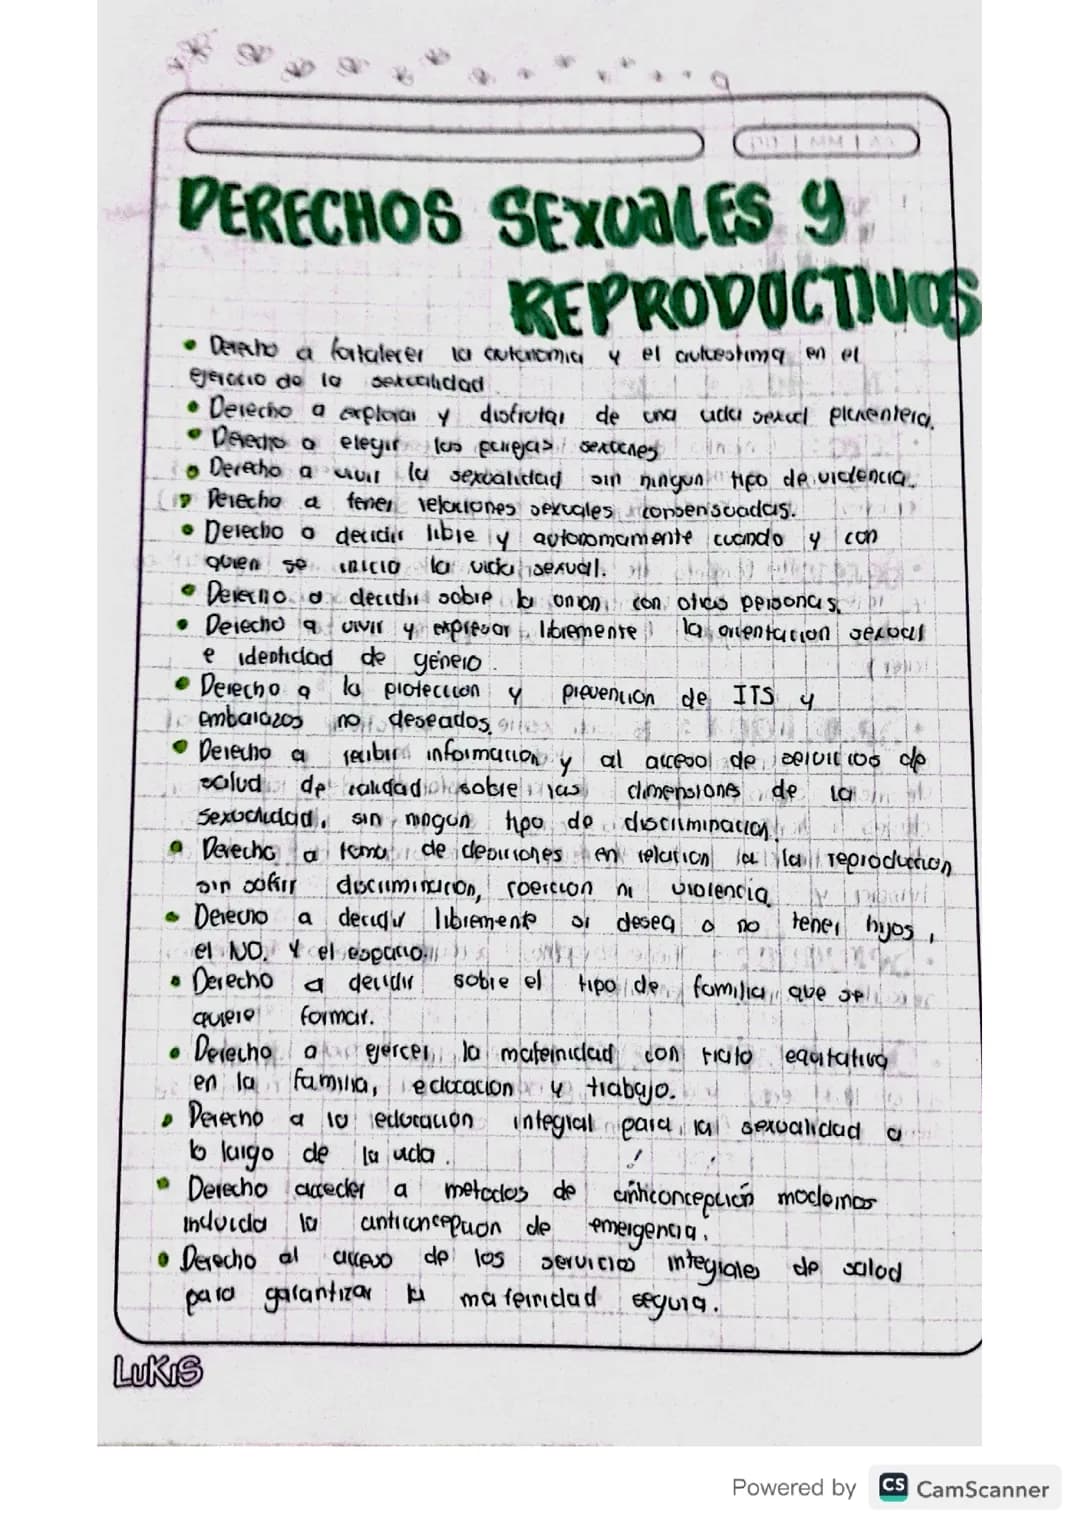 DD | MM | AA
DERECHOS SEXUALES Y
REPRODUCTIVOS
• Derecho a fortalecer la autonomia y el autoestima en el
ejercicio de la sexualidad
• Derecho a explorar y disfrutar de una vida sexual placentera.
• Derecho a elegir las parejas sexuales
• Derecho a vivir la sexualidad sin ningun tipo de violencia.
• Derecho a tener relaciones sexuales consensuadas.
• Derecho a decidir libre y autonomamente cuando y con
quien se inicio la vida sexual.
• Derecho a decidir sobre la union con otras personas.
• Derecho a vivir y expresar libremente la orientacion sexual
e identidad de género.
• Derecho a la proteccion y prevencion de ITS y
embarazos no deseados.
• Derecho a recibir informacion y al acceso de servicios de
salud de calidad sobre las dimensiones de la
sexualidad, sin ningun tipo de discriminacion.
• Derecho a toma de decisiones en relation a la reproduction
sin sofrir discriminacion, coercion ni violencia
• Derecho a decidir libremente si desea o no tener hijos,
el NO. Y el espacio.
• Derecho a decidir sobre el tipo de familia que se
quiere formar.
• Derecho a ejercer la maternidad con trato equitativo
en la familia, educacion y trabajo.
• Derecho a la educacion integral para la sexualidad a
lo largo de la vida.
• Derecho acceder a metodos de anticoncepción modernos
incluida la anticoncepcion de emergencia.
• Derecho al acceso de los servicios integrales de salud
para garantizar la maternidad segura.
LUKIS
Powered by CS CamScanner